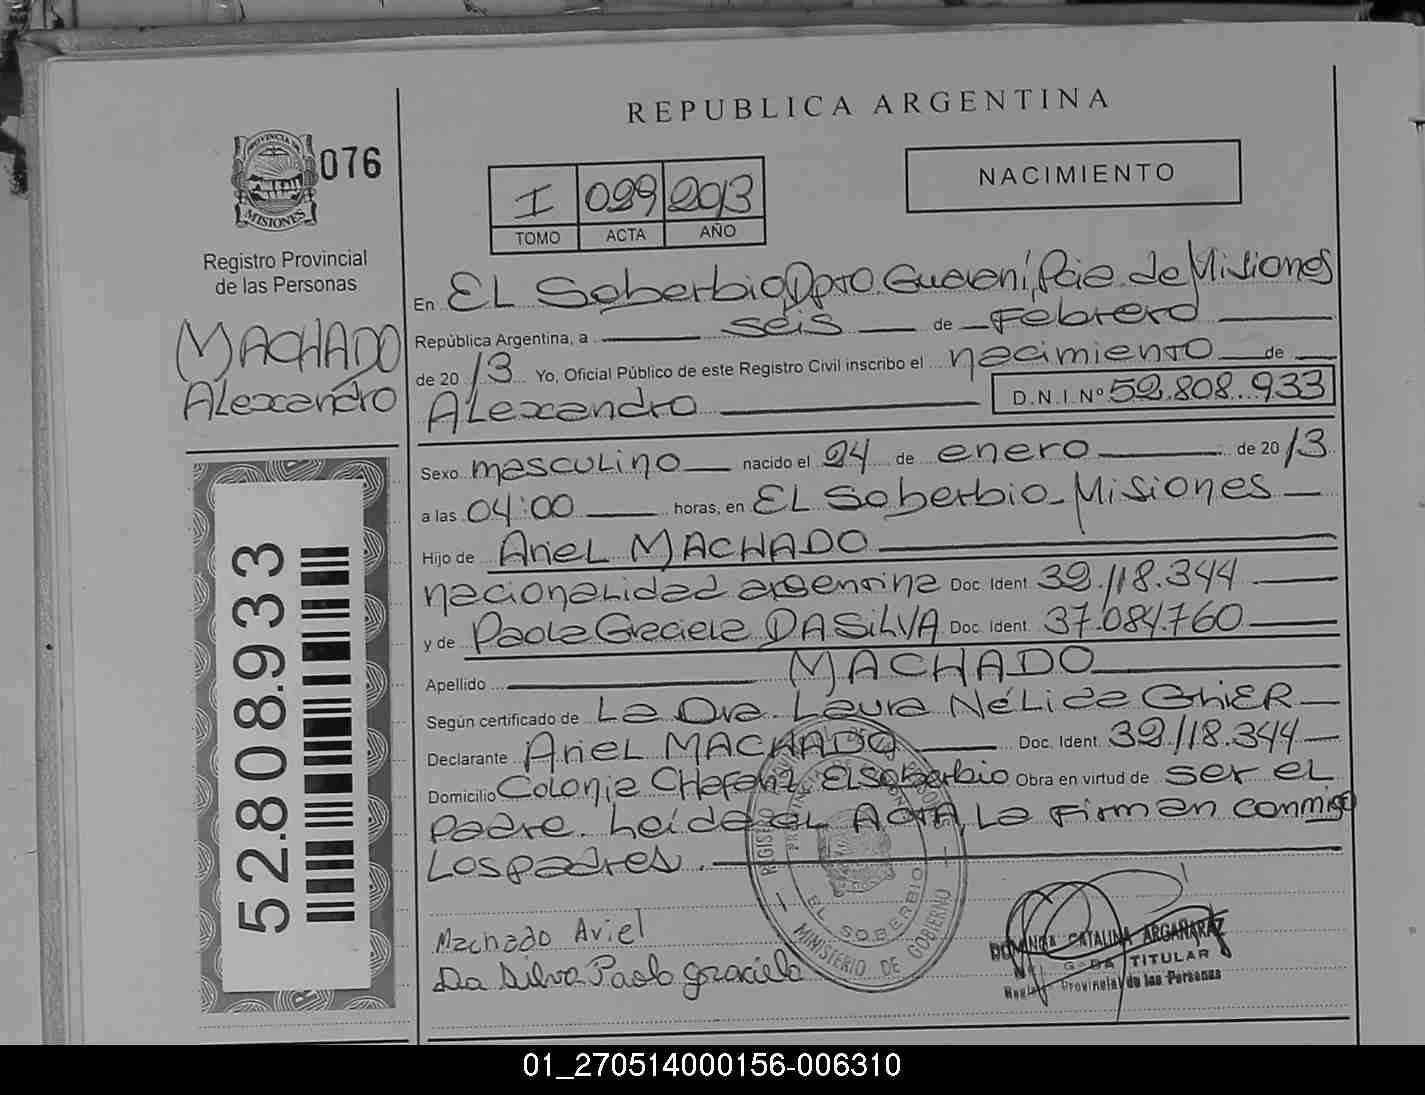 REPUBLICA ARGENTINA
PROVINCIA DE
MISIONES
076
Registro Provincial
de las Personas
MACHADO
Alexandro
52.808.933
I 099 2013
TOMO ACTA AÑO
NACIMIENTO
En El Soberbio, Dpto. Guaraní, Pcia. de Misiones
República Argentina, a seis de Febrero
de 2013 Yo, Oficial Público de este Registro Civil inscribo el nacimiento de
Alexandro D.N.I. Nº 52.808.933
Sexo masculino nacido el 24 de enero de 2013
a las 04:00 horas, en El Soberbio - Misiones
Hijo de Ariel MACHADO
nacionalidad argentina Doc. Ident. 39.118.344
y de Paola Graciela DA SILVA Doc. Ident. 37.084.760
Apellido MACHADO
Según certificado de La Dra. Laura Nélida
Declarante Ariel MACHADO Doc. Ident. 39.118.344
Domicilio Colonia El Soberbio Obra en virtud de ser el
padre. Leída el ACTA, La Firman conmigo
Los padres.
EL SOBERBIO
MINISTERIO DE GOBIERNO
Machado Ariel
Da Silva Paola Graciela
CATALINA ARGAÑARAZ
TITULAR
Provincial de las Personas
01_270514000156-006310